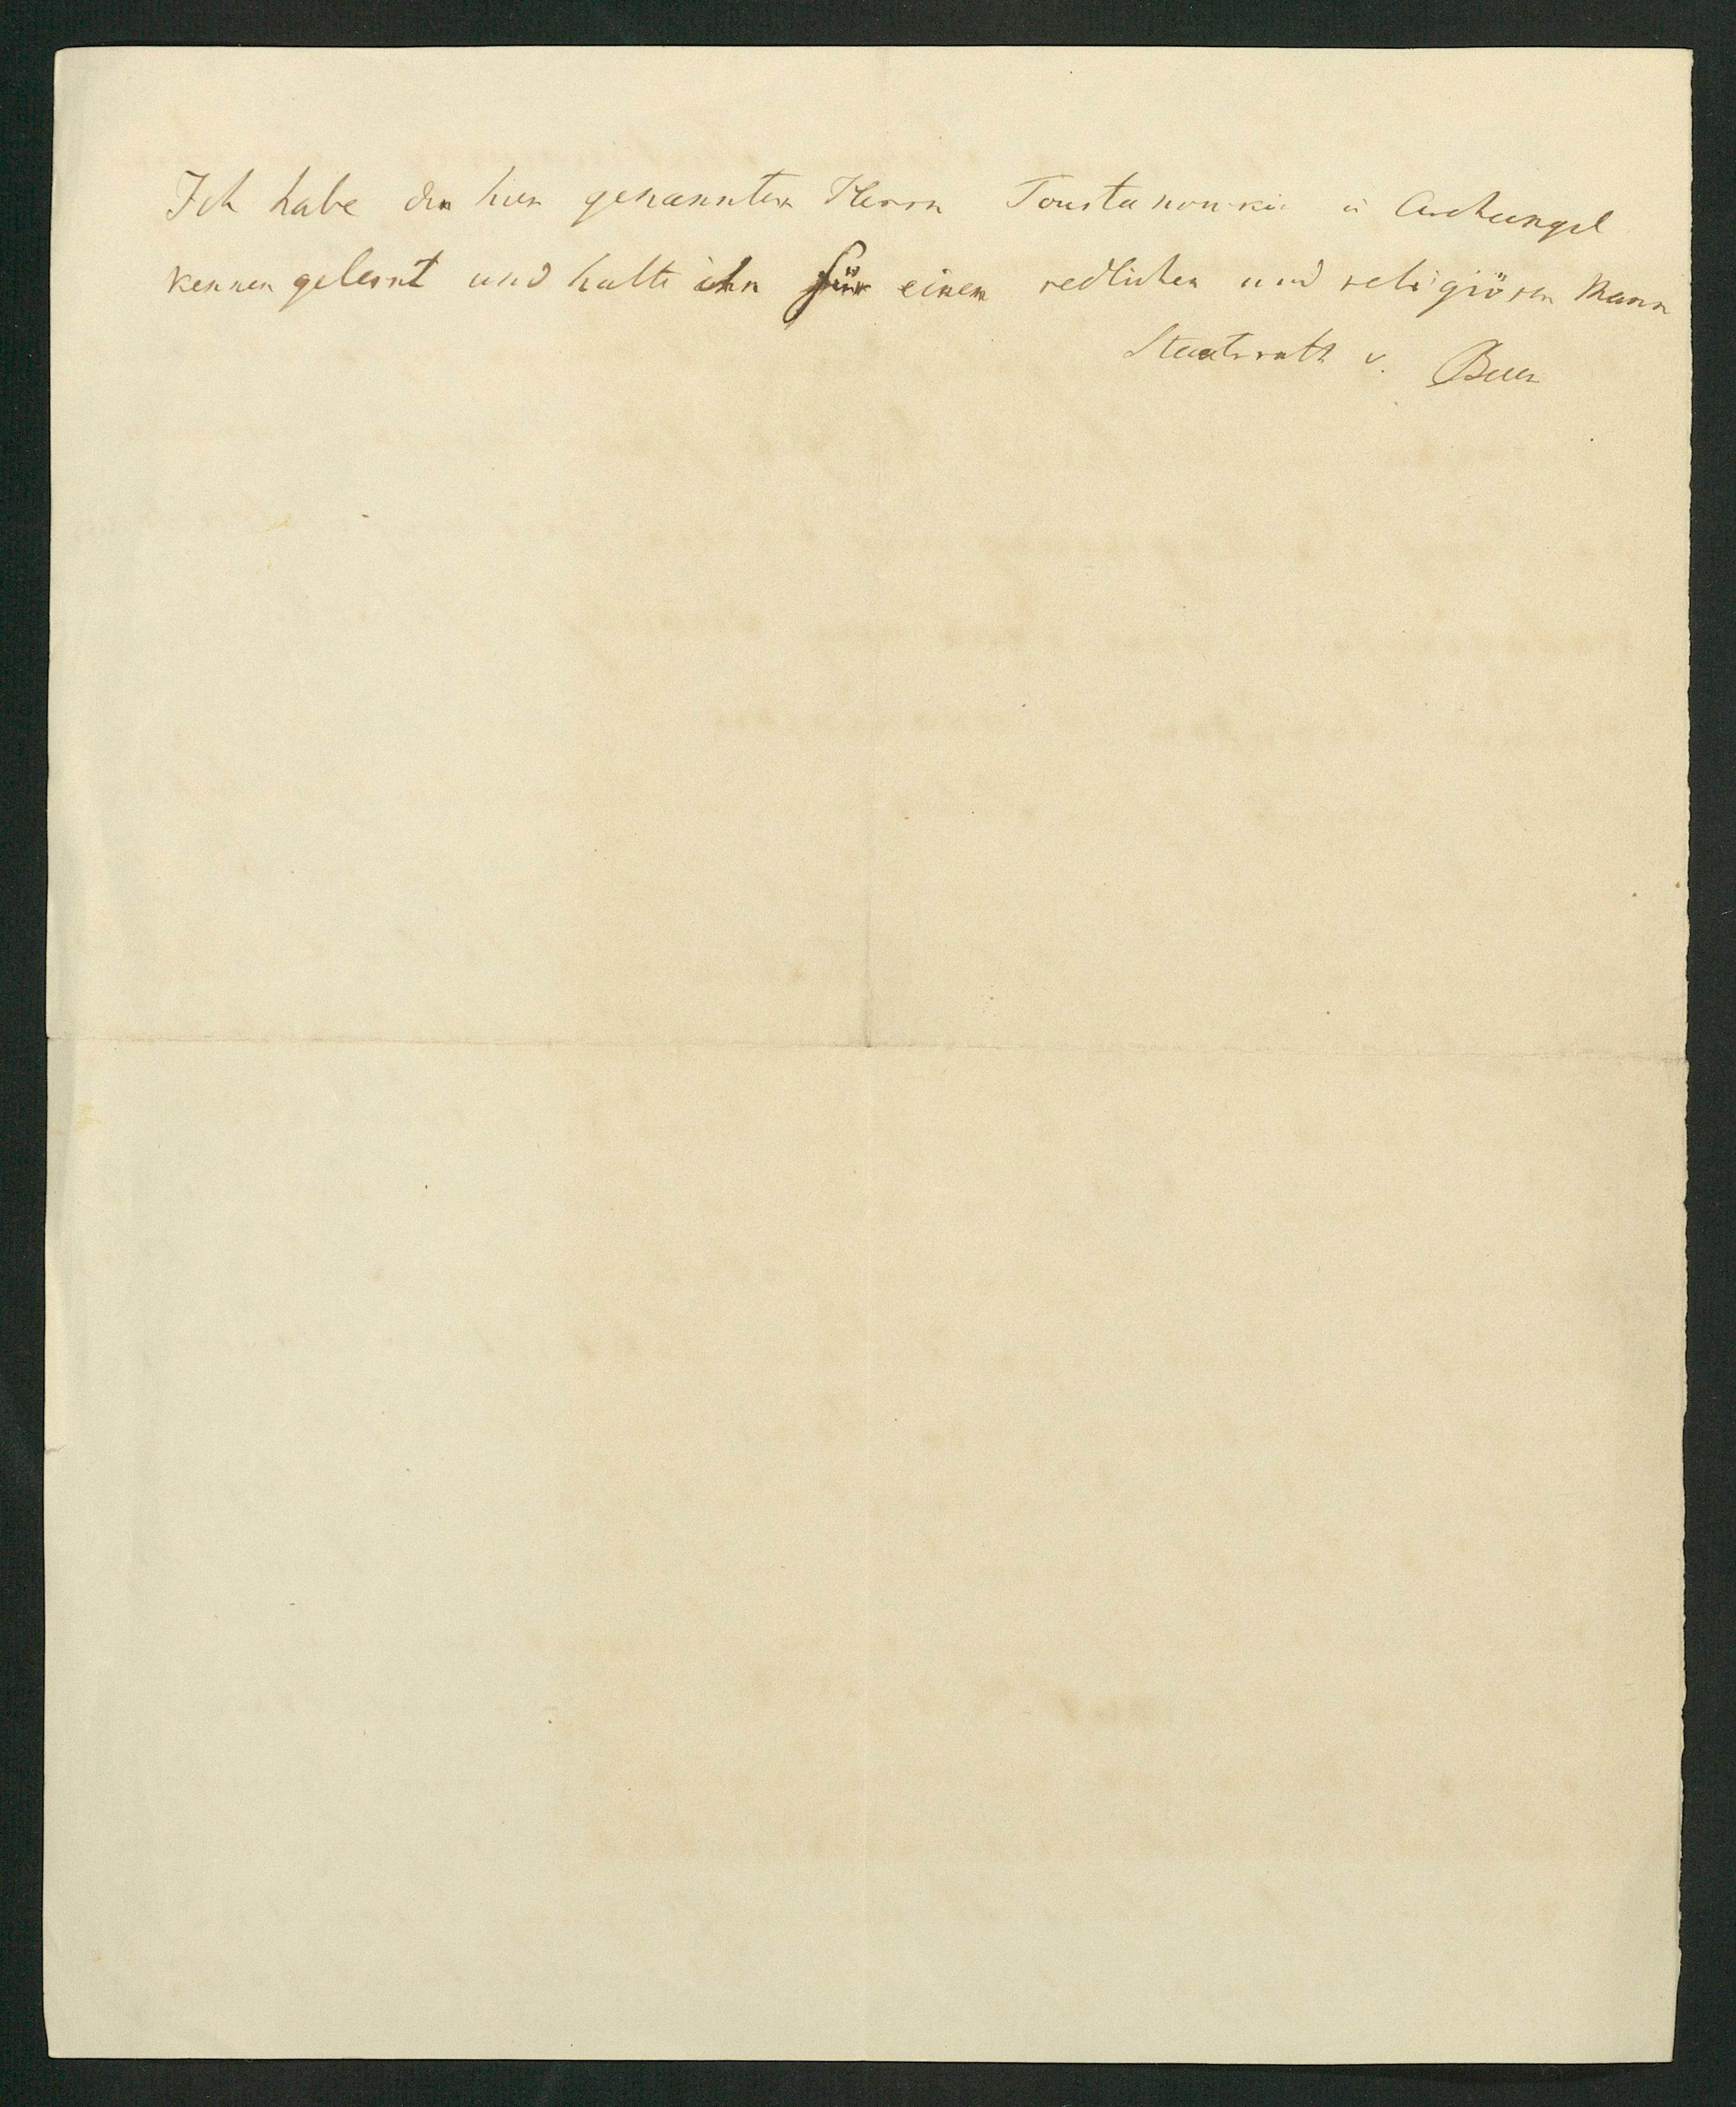 Ich habe den hier genannten Herrn Toustanowski in Archangel
kennen gelernt und halte ihn für einen redlichen und religiösen Mann
Staatsrath v. Baer